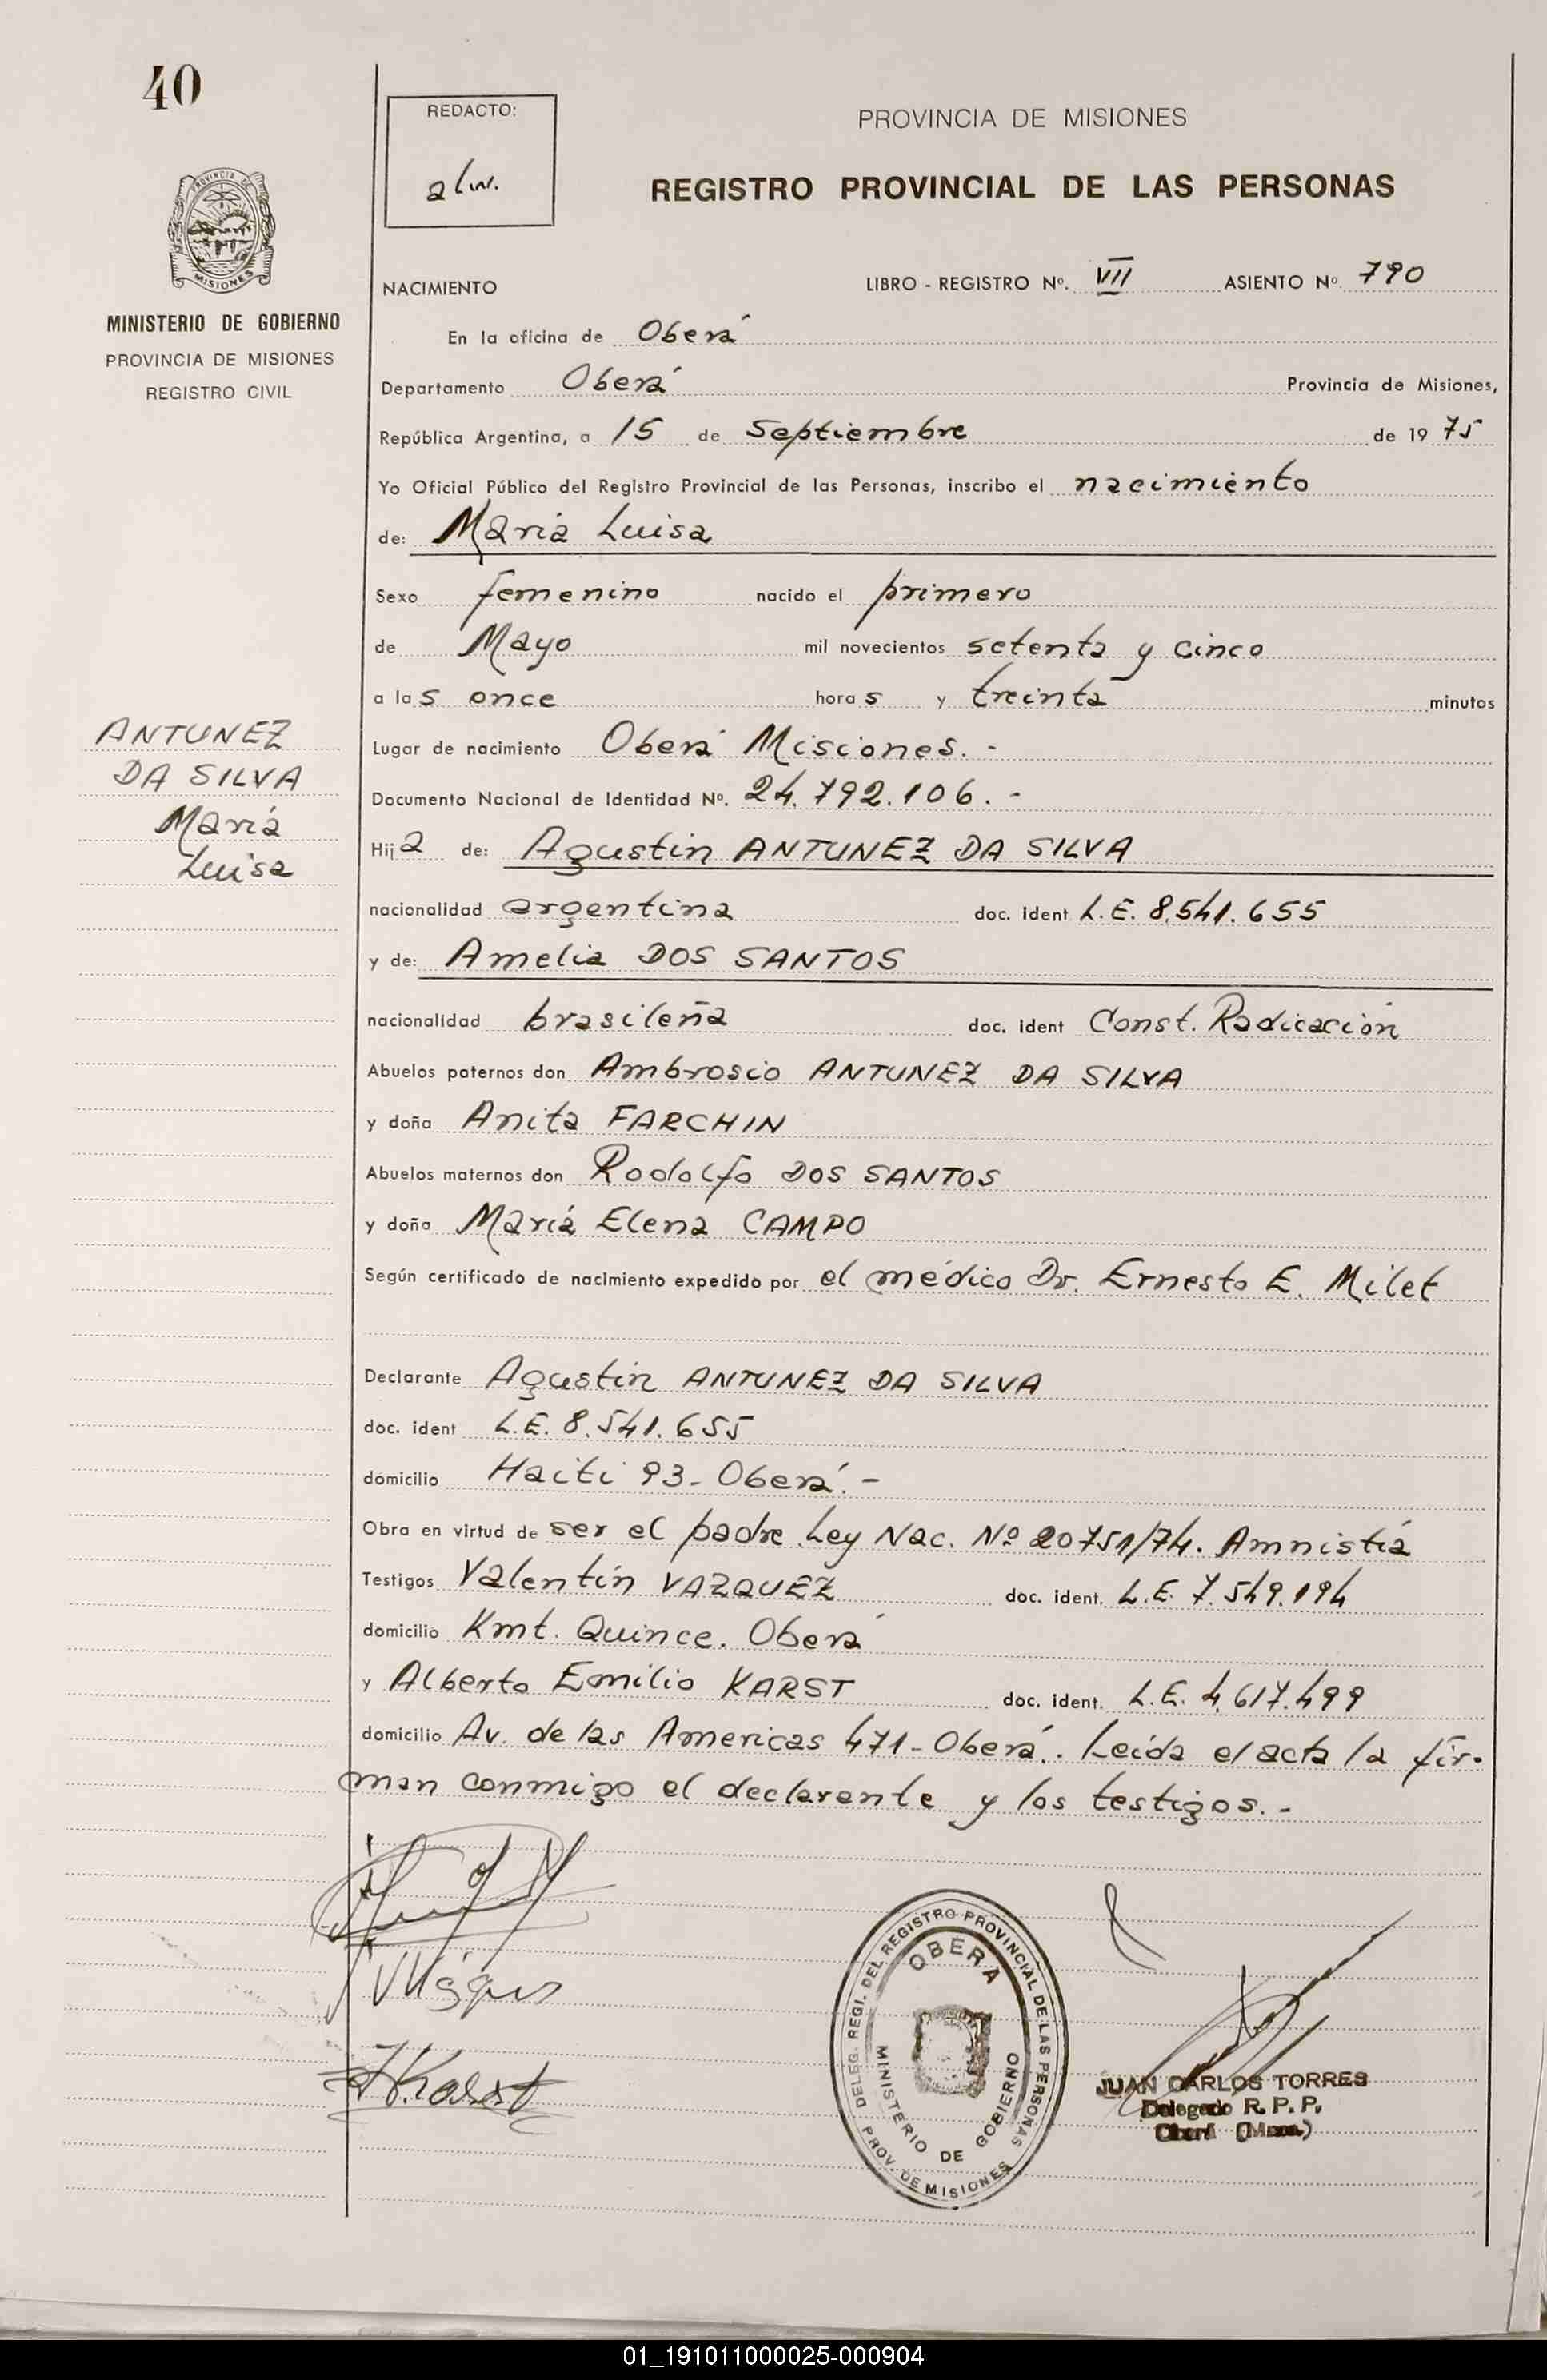 40
REDACTO:
PROVINCIA DE MISIONES
REGISTRO PROVINCIAL DE LAS PERSONAS
PROVINCIA DE
MISIONES
MINISTERIO DE GOBIERNO
PROVINCIA DE MISIONES
REGISTRO CIVIL
NACIMIENTO LIBRO - REGISTRO Nº. VII ASIENTO Nº 790
En la oficina de Oberá
Departamento Oberá Provincia de Misiones,
República Argentina, a 15 de Septiembre de 1975
Yo Oficial Público del Registro Provincial de las Personas, inscribo el nacimiento
de: Maria Luisa
Sexo femenino nacido el primero
de Mayo mil novecientos setenta y cinco
a las once horas y treinta minutos
ANTUNEZ
DA SILVA
Maria
Luisa
Lugar de nacimiento Oberá Misiones. -
Documento Nacional de Identidad Nº. 24.792.106. -
Hija de: Agustin ANTUNEZ DA SILVA
nacionalidad argentina doc. ident L.E. 8.541.655
y de: Amelia DOS SANTOS
nacionalidad brasileña doc. ident Const. Radicación
Abuelos paternos don Ambrosio ANTUNEZ DA SILVA
y doña Anita FARCHIN
Abuelos maternos don Rodolfo DOS SANTOS
y doña María Elena CAMPO
Según certificado de nacimiento expedido por el médico Dr. Ernesto E. Milet
Declarante Agustin ANTUNEZ DA SILVA
doc. ident L.E. 8.541.655
domicilio Haiti 93- Oberá. -
Obra en virtud de ser el padre. Ley Nac. Nº 20751/74. Amnistía
Testigos Valentín VAZQUEZ doc. ident. L.E. 7.549.194
domicilio Kmt. Quince. Oberá
y Alberto Emilio KARST doc. ident. L.E. 4.617.499
domicilio Av. de las Americas 471-Oberá.. Leída el acta la fir-
man conmigo el declarante y los testigos. -
Karst
DELEG. REGI. DEL REGISTRO PROVINCIAL DE LAS PERSONAS
OBERA
MINISTERIO DE GOBIERNO
PROV. DE MISIONES
JUAN CARLOS TORRES
Delegado R. P. P.
Oberá (Mnes.)
01_191011000025-000904